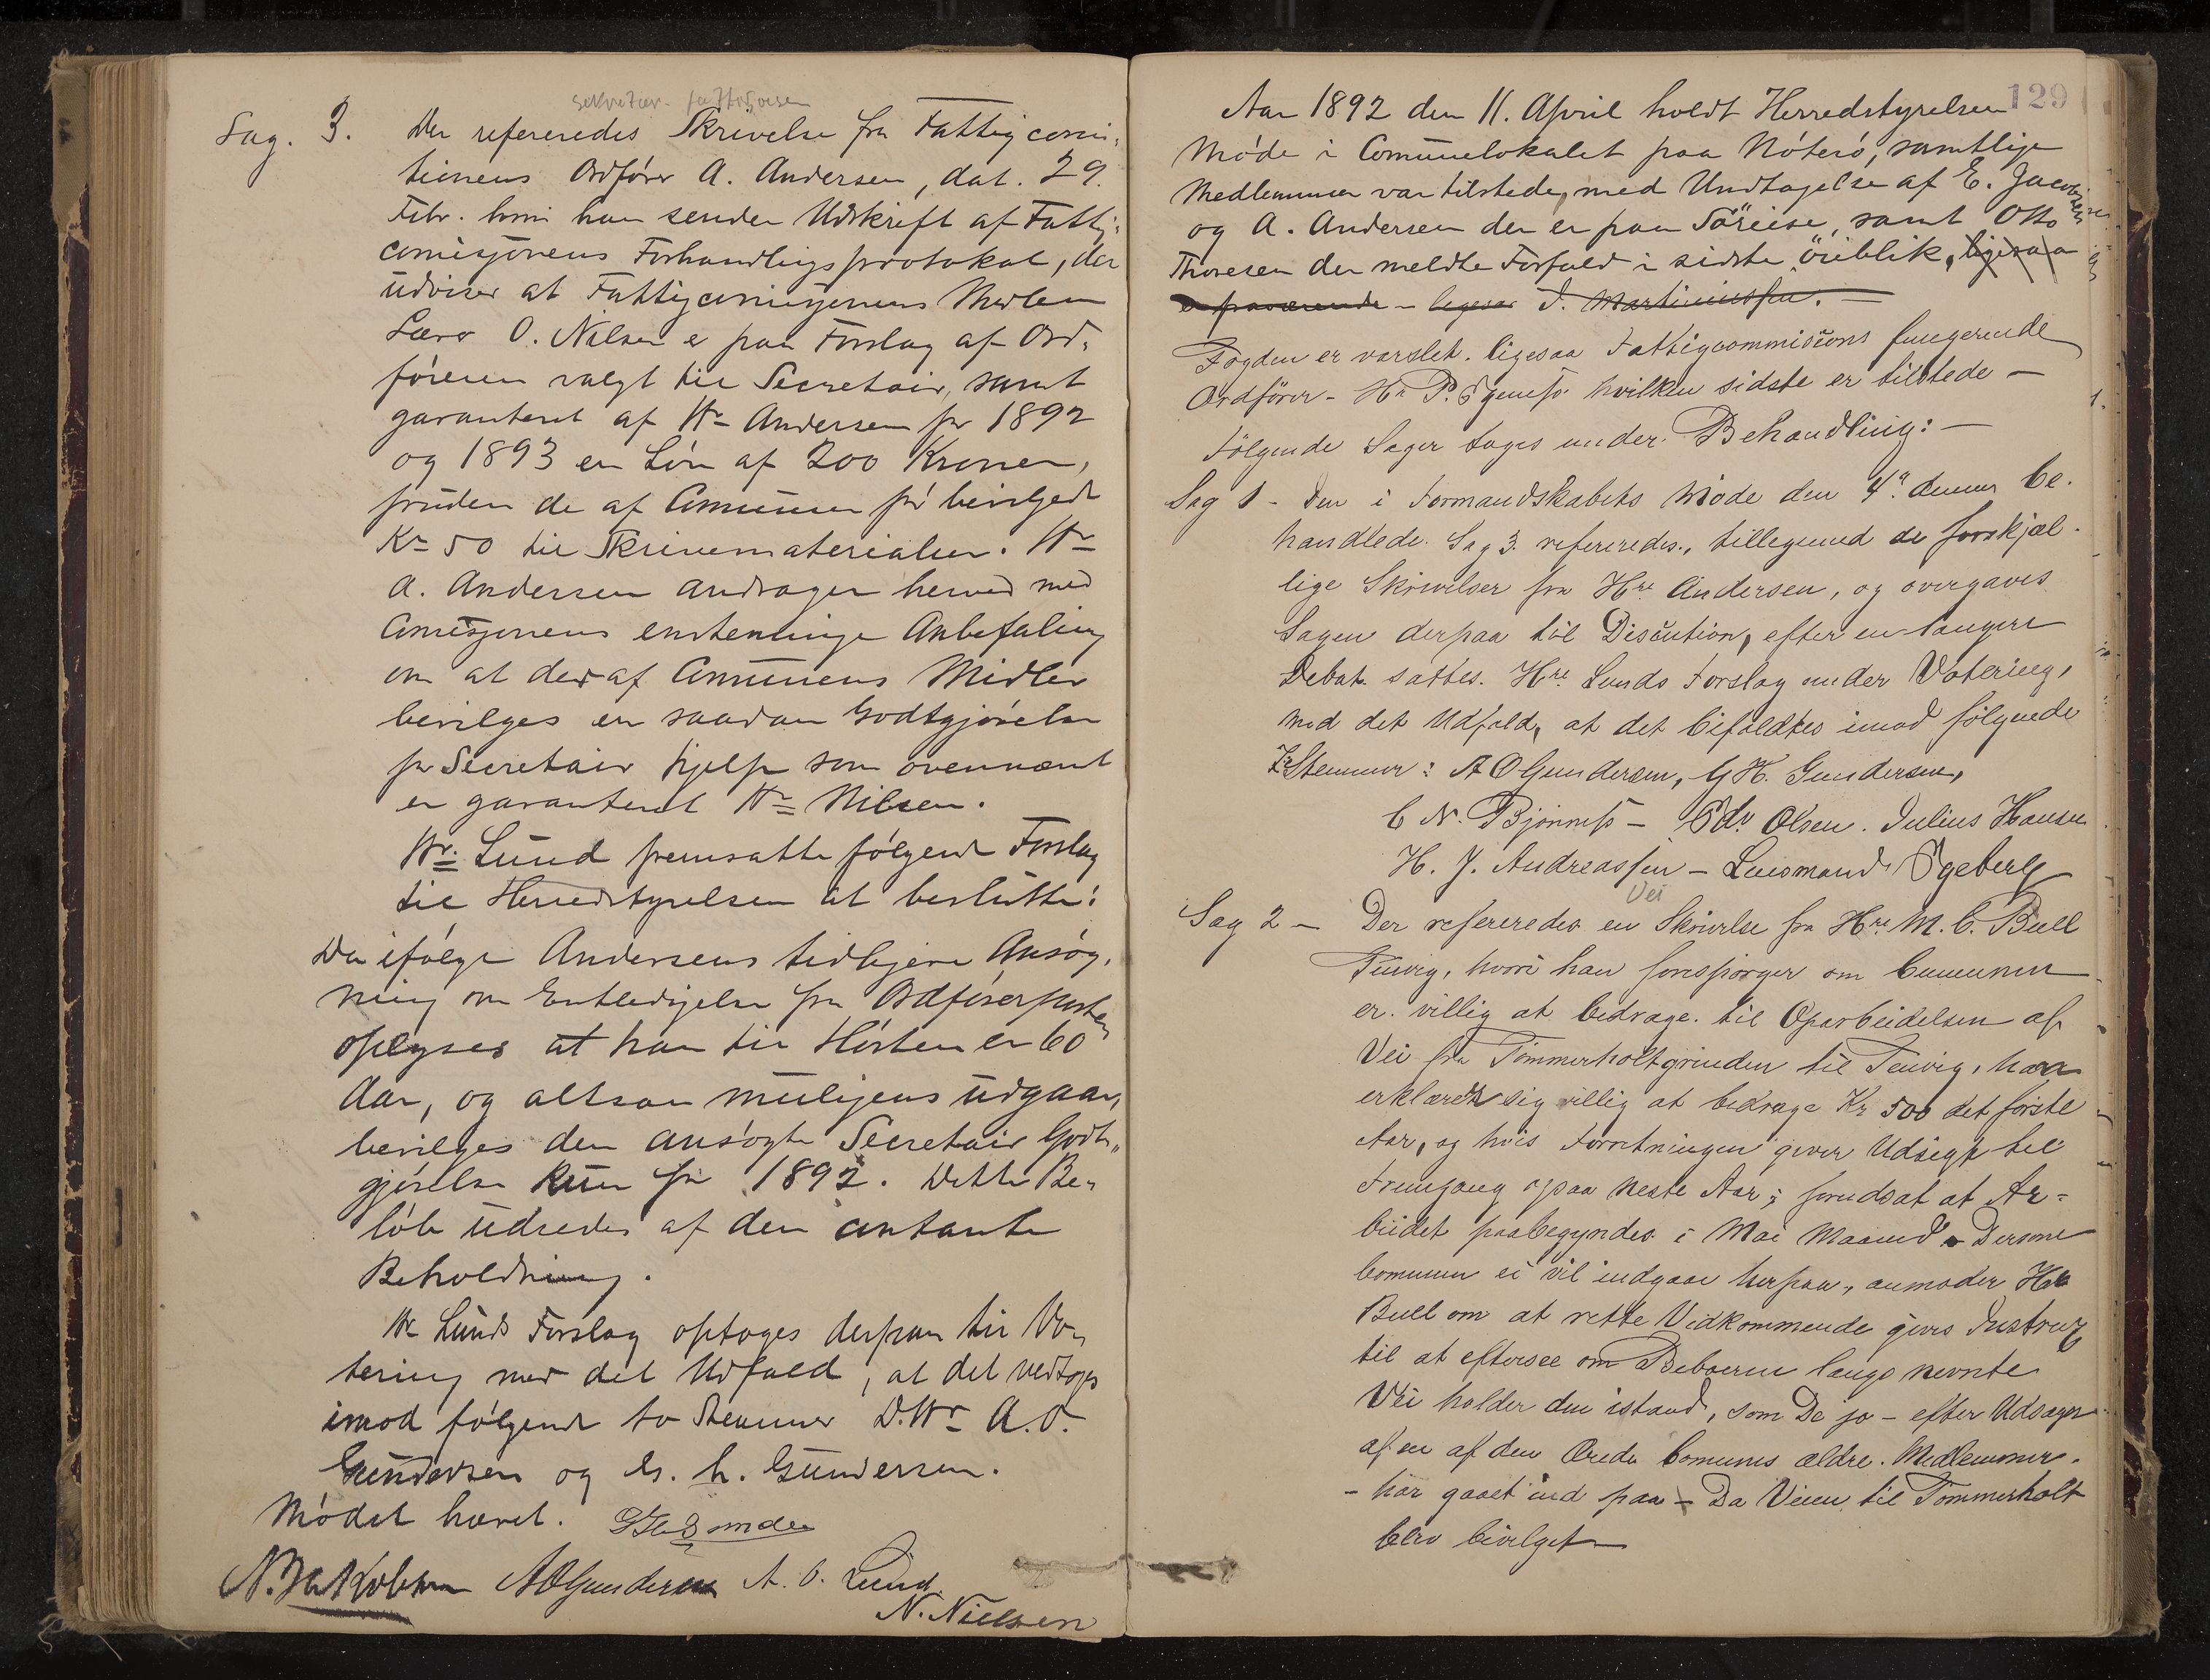 Sekretær
Sag. 3. Der refereredes Skrivelse fra Fattigcomi-
sionens Ordfører A. Andersen, dat. 29.
Febr. hvori han sender Udskrift af Fattig-
comisjonens Forhandlingsprotokol, der
udviser at Fattigcomisjonens Medlem
Lærer O. Nilsen er paa Forslag af Ord-
føreren valgt til Secretair, samt
garanteret af Hr Andersen for 1892
og 1893 en Løn af 200 Kroner,
foruden de af Comunen før bevilgede
Kr 50 til Skrivematerialier. Hr
A. Andersen andrager herved med
Comisjonens enstemmige Anbefaling
om at der af Comunens Midler
bevilges en saadan Godtgjørelse
for Secretair hjelp som ovennævnt
er garanteret Hr Nilsen.
Hr. Lund fremsatte følgende Forslag
til Herredstyrelsen at beslutte:
Da ifølge Andersens tidligere Ansøg-
ning om Entledigelse fra Ordførerposten
oplyses at han til Høsten er 60
Aar, og altsaa muligens udgaar,
bevilges den ansøgte Secretair Godt-
gjørelse kun for 1892. Dette Be-
løb udredes af den antante
Beholdning.
Hr Lunds Forslag optoges derpaa til Vo-
tering med det Udfald, at det vedtoges
imod følgende to Stemmer D.Hr A.O.
Gundersen og G. H. Gundersen.
Mødet hævet.
N. Jakobsen AOGundersen A. C. Lund.
N. Nielsen
129
Aar 1892 den 11. April holdt Herredstyrelsen
Møde i Comunelokalet paa Nøterø, samtlige
Medlemmer var tilstede, med Undtagelse af E. Jacobsen
og A. Andersen der er paa Søreise, samt Otto
Thoresen der meldte Forfald i sidste öieblik, ligesaa
er fraværende – ligesaa J. Martiniussen. –
Fogden er varslet. ligesaa Fattigcommisions fungerende
Ordfører – Hr P. Egeness hvilken sidste er tilstede –
Følgende Sager toges under Behandling: –
Sag 1 – Den i Formandskabets Møde den 4de dennes be-
handlede Sag 3. refereredes, tilligemed de forskjel-
lige Skrivelser fra Hre Andersen, og overgaves
Sagen derpaa til Discution, efter en længere
Debat sattes Hre Lunds Forslag under Votering,
med det Udfald, at det bifaldtes imod følgende
7 Stemmer: A O Gundersen, G H. Gundersen,
C N. Bjønness – Edv Olsen. Julius Hansen
H. J. Andreassen – Lensmand Ogeberg
Vei
Sag 2 – Der refereredes en Skrivelse fra Hre M. C. Bull
Tenvig, hvori han forespørger om Comunen
er villig at bidrage til Oparbeidelsen af
Vei fra Tømmerholtgrinden til Tenvig, han
erklærer sig villig at bidrage Kr 500 det første
Aar, og hvis Forretningen giver Udsigt til
Fremgang ogsaa neste Aar; forudsat at Ar-
beidet paabegyndes i Mai Maaned – Dersom
Comunen ei vil indgaae herpaa, anmoder Hr
Bull om at rette Vedkommende gives Instrux
til at eftersee om Beboerne langs nevnte
Vei holder den istand, som De jo – efter Udsagn
af en af den Ærede Comunes ældre Medlemmer
– har gaaet ind paa – Da Veien til Tømmerholt
blev bevilget –